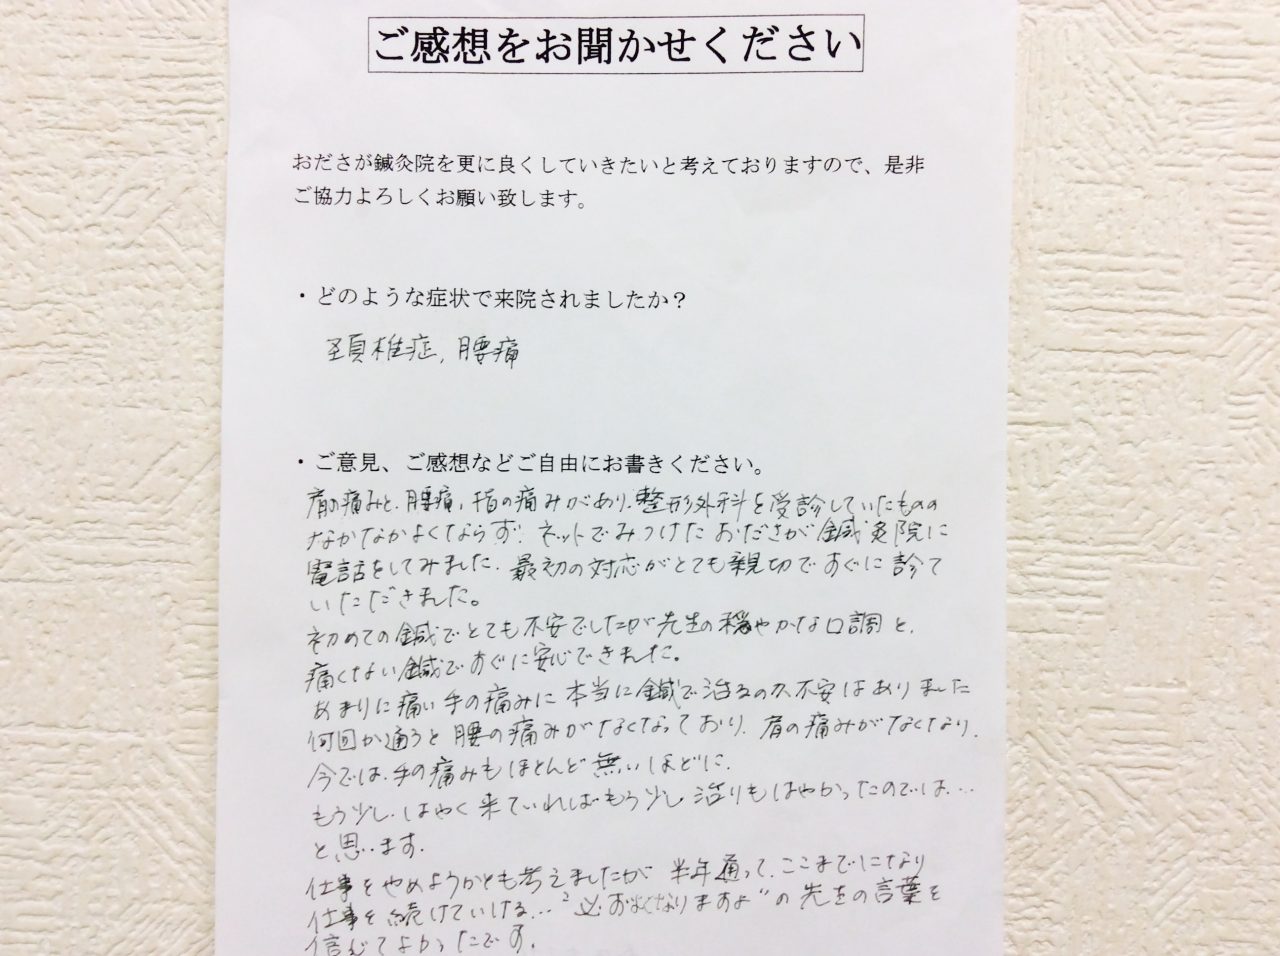 ご感想をお聞かせください
おださが鍼灸院を更に良くしていきたいと考えておりますので、是非
ご協力よろしくお願い致します。
・どのような症状で来院されましたか？
頚椎症，腰痛
・ご意見、ご感想などご自由にお書きください。
肩の痛みと、腰痛，指の痛みがあり、整形外科を受診していたものの
なかなかよくならず、ネットでみつけたおださが鍼灸院に
電話をしてみました、最初の対応がとても親切ですぐに診て
いただきました。
初めての鍼でとても不安でしたが先生の穏やかな口調と、
痛くない鍼ですぐに安心できました。
あまりに痛い手の痛みに本当に鍼で治るのか不安はありました
何回か通うと腰の痛みがなくなっており、肩の痛みがなくなり、
今では、手の痛みもほとんど無いほどに、
もう少しはやく来ていればもう少し治りもはやかったのでは…
と思います。
仕事をやめようかとも考えましたが半年通って、ここまでになり
仕事を続けていける…“必ずよくなりますよ”の先生の言葉を
信じてよかったです。